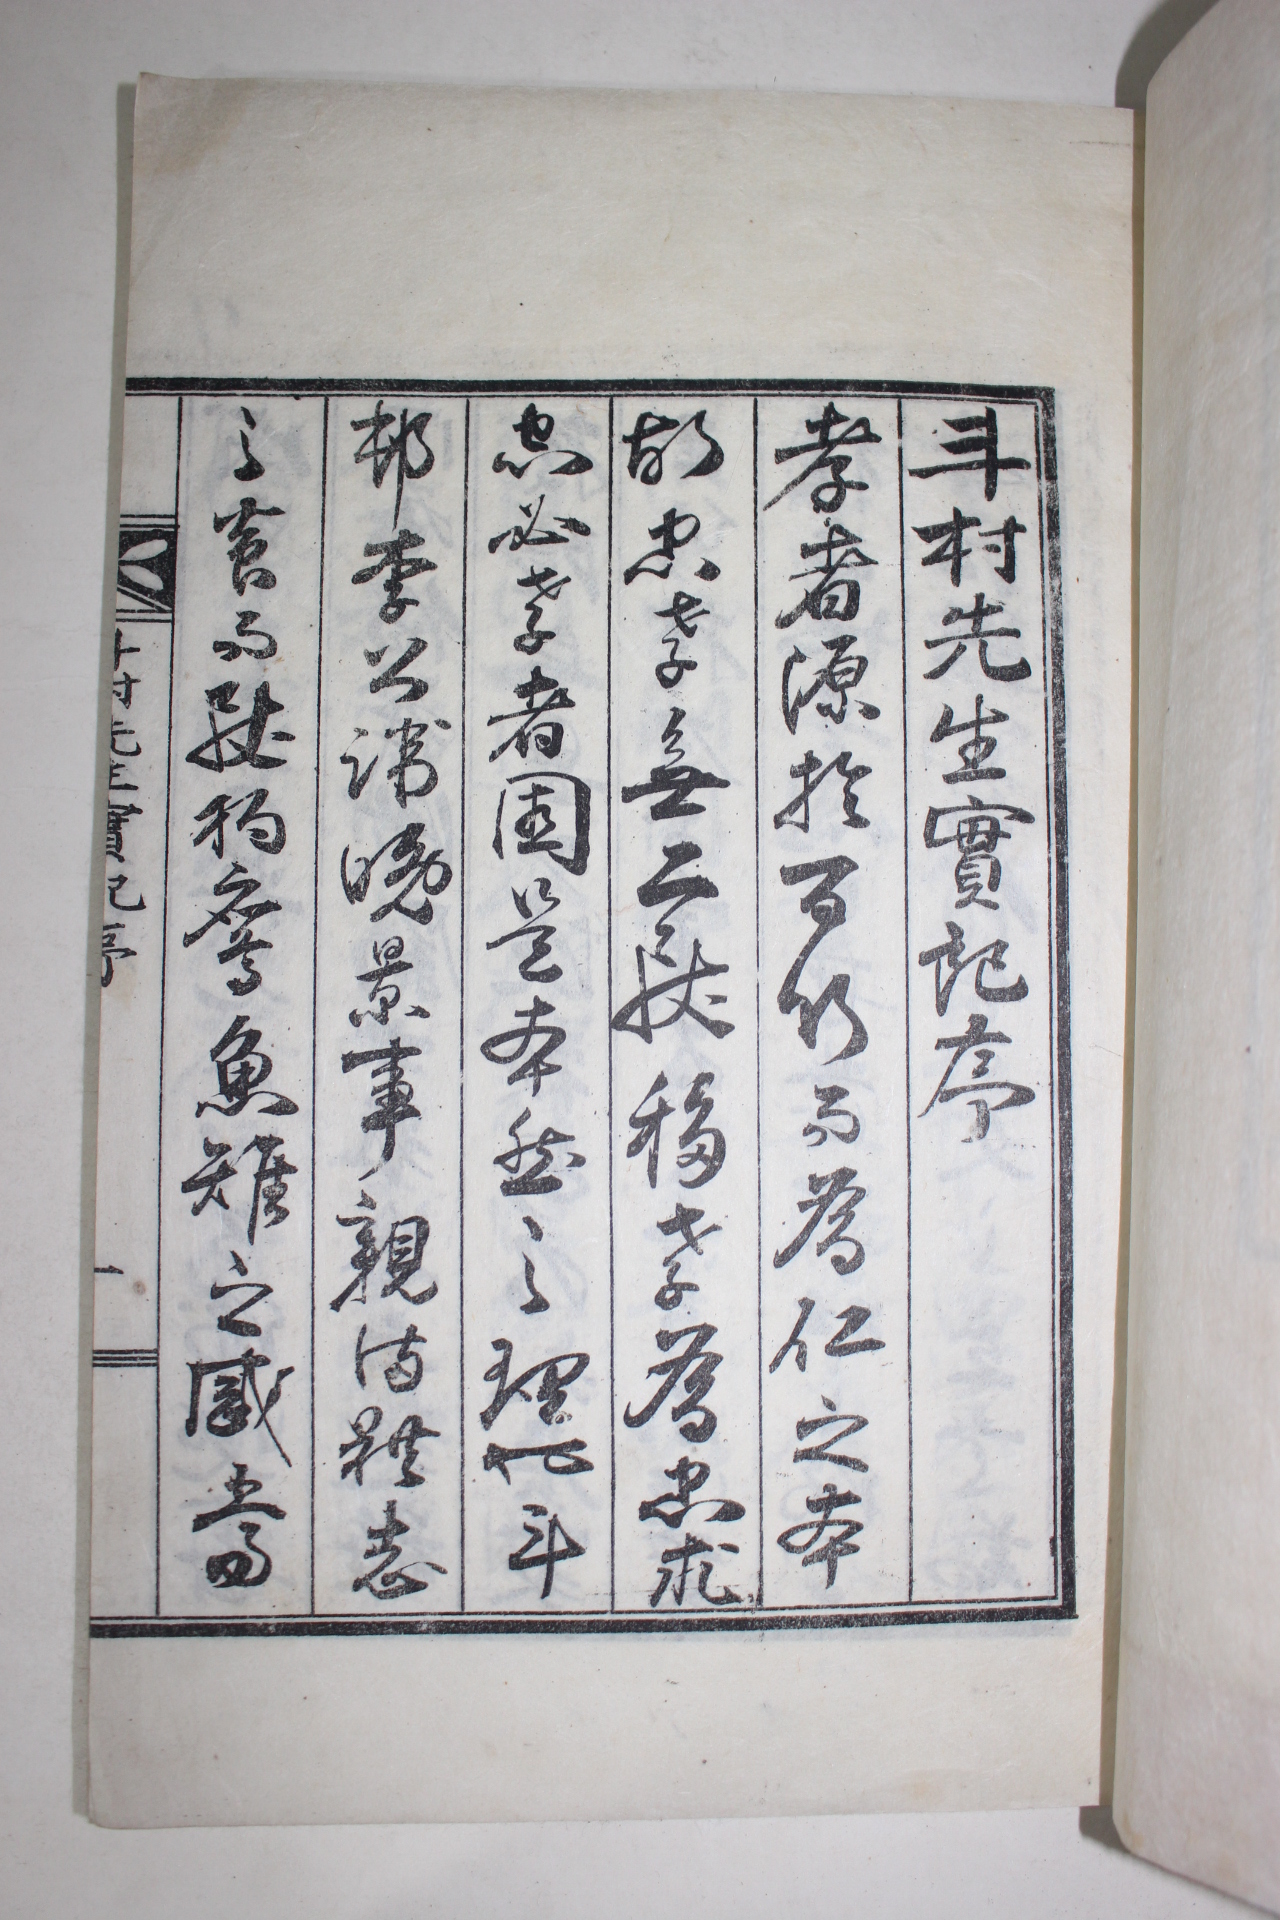 斗村先生實記序
孝者源於百行而爲仁之本
故忠孝無二致移孝爲忠求
忠必孝者固是本然之理也斗
邨李公諱晩景事親備體志
之養而致狗鳶魚雉之感當
斗村先生實記序
一